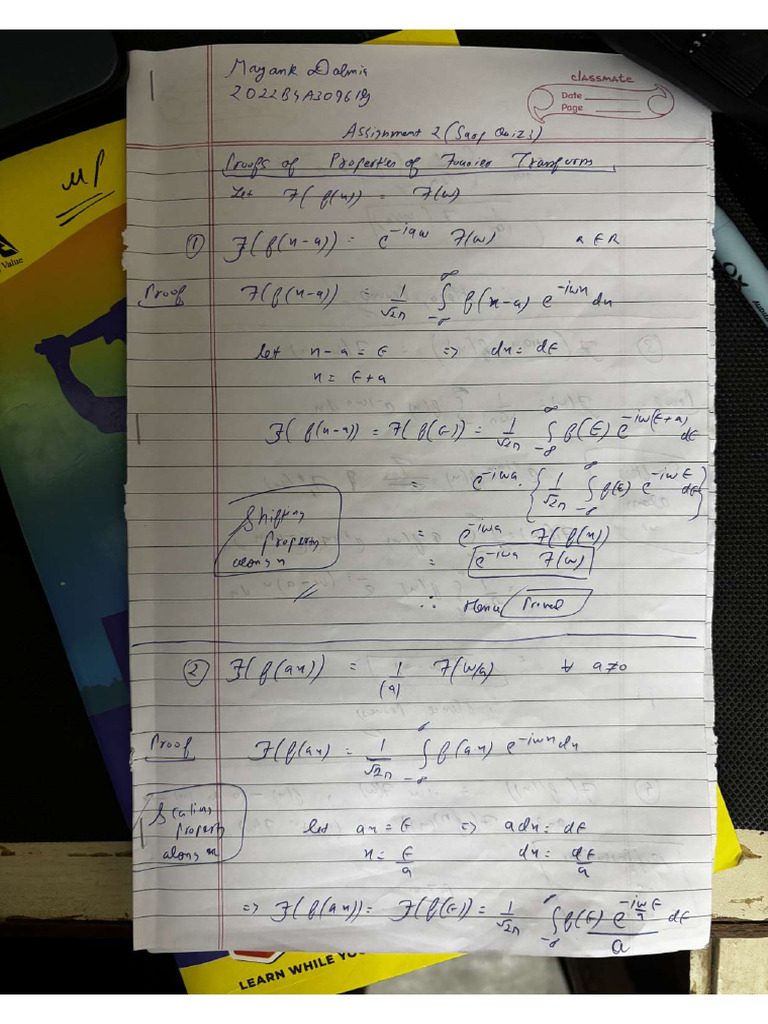 Mayank Dalmia
2022B4A30961G
classmate
Date
Page
Assignment 2 (Quiz 3)
Proofs of Properties of Fourier Transform
MP
Let F(f(x)) = F(w)
Value
① F(f(x-a)) = e^{-iaw} F(w) a ∈ R
OX
Proof F(f(x-a)) = 1/√2π ∫_{-∞}^{∞} f(x-a) e^{-iwx} dx
let x-a = t => dx = dt
x = t+a
F(f(x-a)) = F(f(t)) = 1/√2π ∫_{-∞}^{∞} f(t) e^{-iw(t+a)} dt
= e^{-iwa}. { 1/√2π ∫_{-∞}^{∞} f(t) e^{-iwt} dt }
Shifting
Property
along x
= e^{-iwa} F(f(x))
= e^{-iwa} F(w)
∴ Hence Proved
② F(f(ax)) = 1/(a) F(w/a) ∀ a≠0
Proof F(f(ax) = 1/√2π ∫_{-∞}^{∞} f(ax) e^{-iwx} dx
Scaling
Property
along x
let ax = t => adx = dt
x = t/a dx = dt/a
=> F(f(ax)) = F(f(t)) = 1/√2π ∫_{-∞}^{∞} f(t) e^{-iw t/a} / a dt
LEARN WHILE YOU